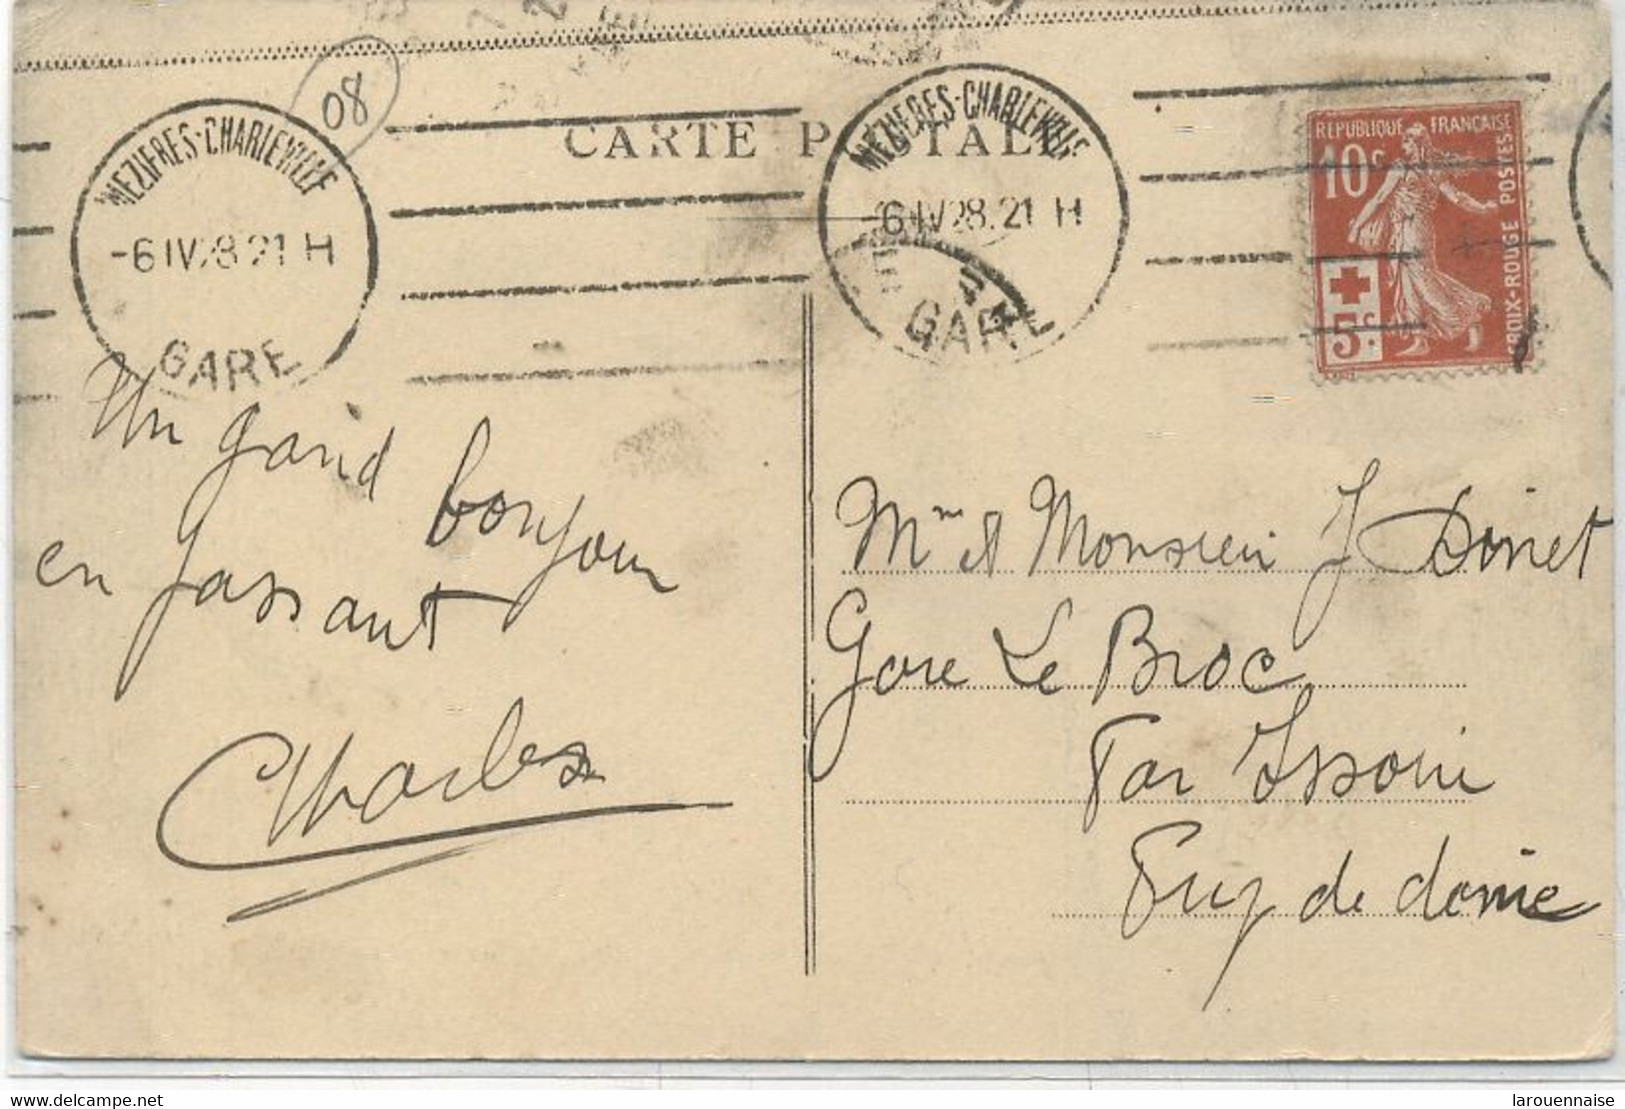 08
CARTE POSTALE
MEZIERES-CHARLEVILLE
-6 IV 28 21 H
GARE
MEZIERES-CHARLEVILLE
-6 IV 28.21 H
GARE
REPUBLIQUE FRANÇAISE
10c
POSTES
CROIX-ROUGE
5c
Un grand bonjour
en passant
Charles
Mme et Monsieur J Doinet
Gare Le Broc
Par Issoire
Puy de dome
delcampe.net
larouennaise